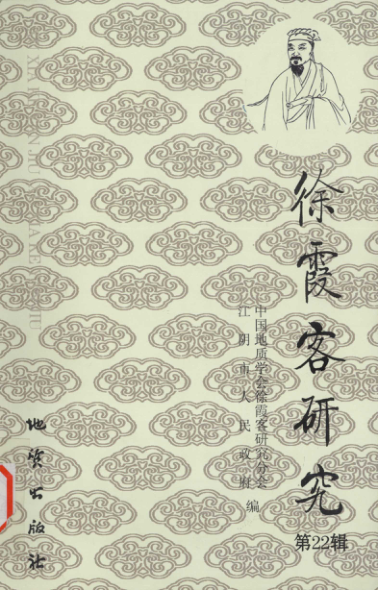 徐霞客研究
第22辑
中国地质学会徐霞客研究分会
江阴市人民政府 编
地质出版社